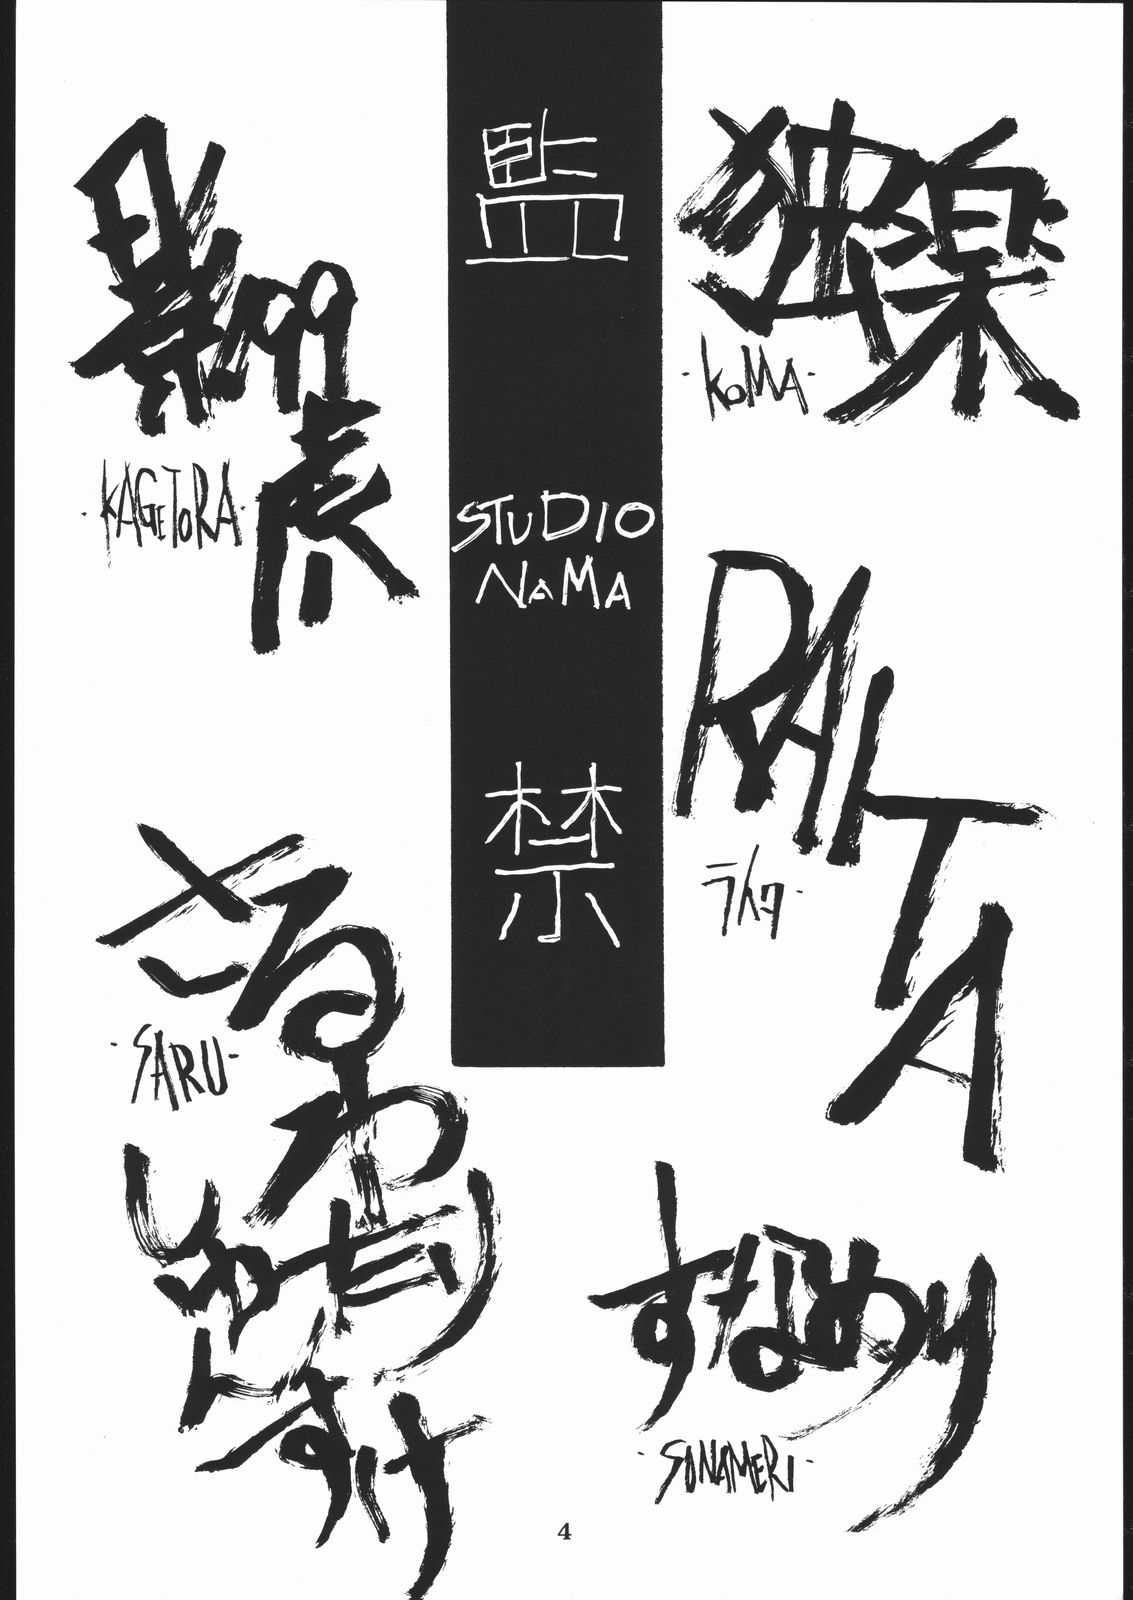 独楽
·KOMA·
RAITA
ライタ·
すなめり
·SONAMERI·
監
STUDIO
NAMA
禁
影
'99
虎
·KAGETORA·
さるわたり
·SARU·
しゅんすけ
4